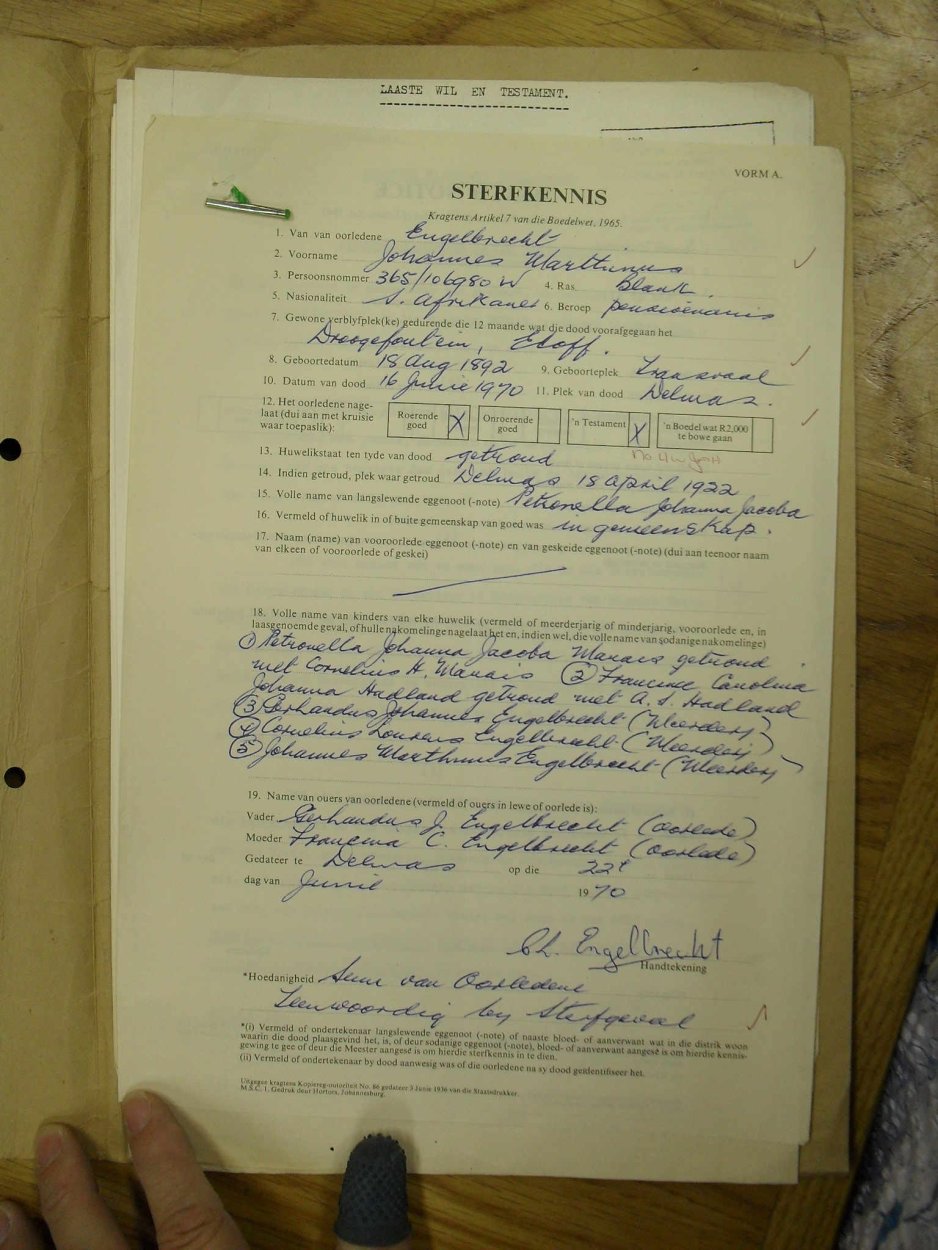 LAASTE WIL EN TESTAMENT.
VORM A.
STERFKENNIS
Kragtens Artikel 7 van die Boedelwet, 1965.
1. Van van oorledene Engelbrecht
2. Voorname Johannes Marthinus
3. Persoonsnommer 365/106980 W 4. Ras. Blank.
5. Nasionaliteit S. Afrikaner 6. Beroep pensioenaris
7. Gewone verblyfplek(ke) gedurende die 12 maande wat die dood voorafgegaan het
Droogefontein, Eloff.
8. Geboortedatum 18 Aug 1892 9. Geboorteplek Transvaal
10. Datum van dood 16 Junie 1970 11. Plek van dood Delmas.
12. Het oorledene nage-
laat (dui aan met kruisie
waar toepaslik):
Roerende
goed X
Onroerende
goed
'n Testament X
'n Boedel wat R2,000
te bowe gaan
13. Huwelikstaat ten tyde van dood getroud
14. Indien getroud, plek waar getroud Delmas 18 April 1922
15. Volle name van langslewende eggenoot (-note) Petronella Johanna Jacoba
16. Vermeld of huwelik in of buite gemeenskap van goed was in gemeenskap.
17. Naam (name) van vooroorlede eggenoot (-note) en van geskeide eggenoot (-note) (dui aan teenoor naam
van elkeen of vooroorlede of geskei)
18. Volle name van kinders van elke huwelik (vermeld of meerderjarig of minderjarig, vooroorlede en, in
laasgenoemde geval, of hulle nakomelinge nagelaat het en, indien wel, die volle name van sodanige nakomelinge)
① Petronella Johanna Jacoba Marais getroud
met Cornelius H. Marais ② Francina Carolina
Johanna Hadland getroud met A. S. Hadland
③ Gerhardus Johannes Engelbrecht (Meerderj)
④ Cornelius Lourens Engelbrecht (Meerderj)
⑤ Johannes Marthinus Engelbrecht (Meerderj)
19. Name van ouers van oorledene (vermeld of ouers in lewe of oorlede is):
Vader Gerhardus J. Engelbrecht (oorlede)
Moeder Francina C. Engelbrecht (oorlede)
Gedateer te Delmas op die 22e
dag van Junie 1970
C.L. Engelbrecht
Handtekening
*Hoedanigheid Seun van Oorledene
Teenwoordig by Sterfgeval
*(i) Vermeld of ondertekenaar langslewende eggenoot (-note) of naaste bloed- of aanverwant wat in die distrik woon
waarin die dood plaasgevind het, is, of deur sodanige eggenoot (-note), bloed- of aanverwant aangesê is om hierdie kennis-
gewing te gee of deur die Meester aangesê is om hierdie sterfkennis in te dien.
(ii) Vermeld of ondertekenaar by dood aanwesig was of die oorledene na sy dood geïdentifiseer het.
Uitgegee kragtens Kopiereg-outoriteit No. 86 gedateer 3 Junie 1936 van die Staatsdrukker.
M.S.C. 1. Gedruk deur Hortors, Johannesburg.